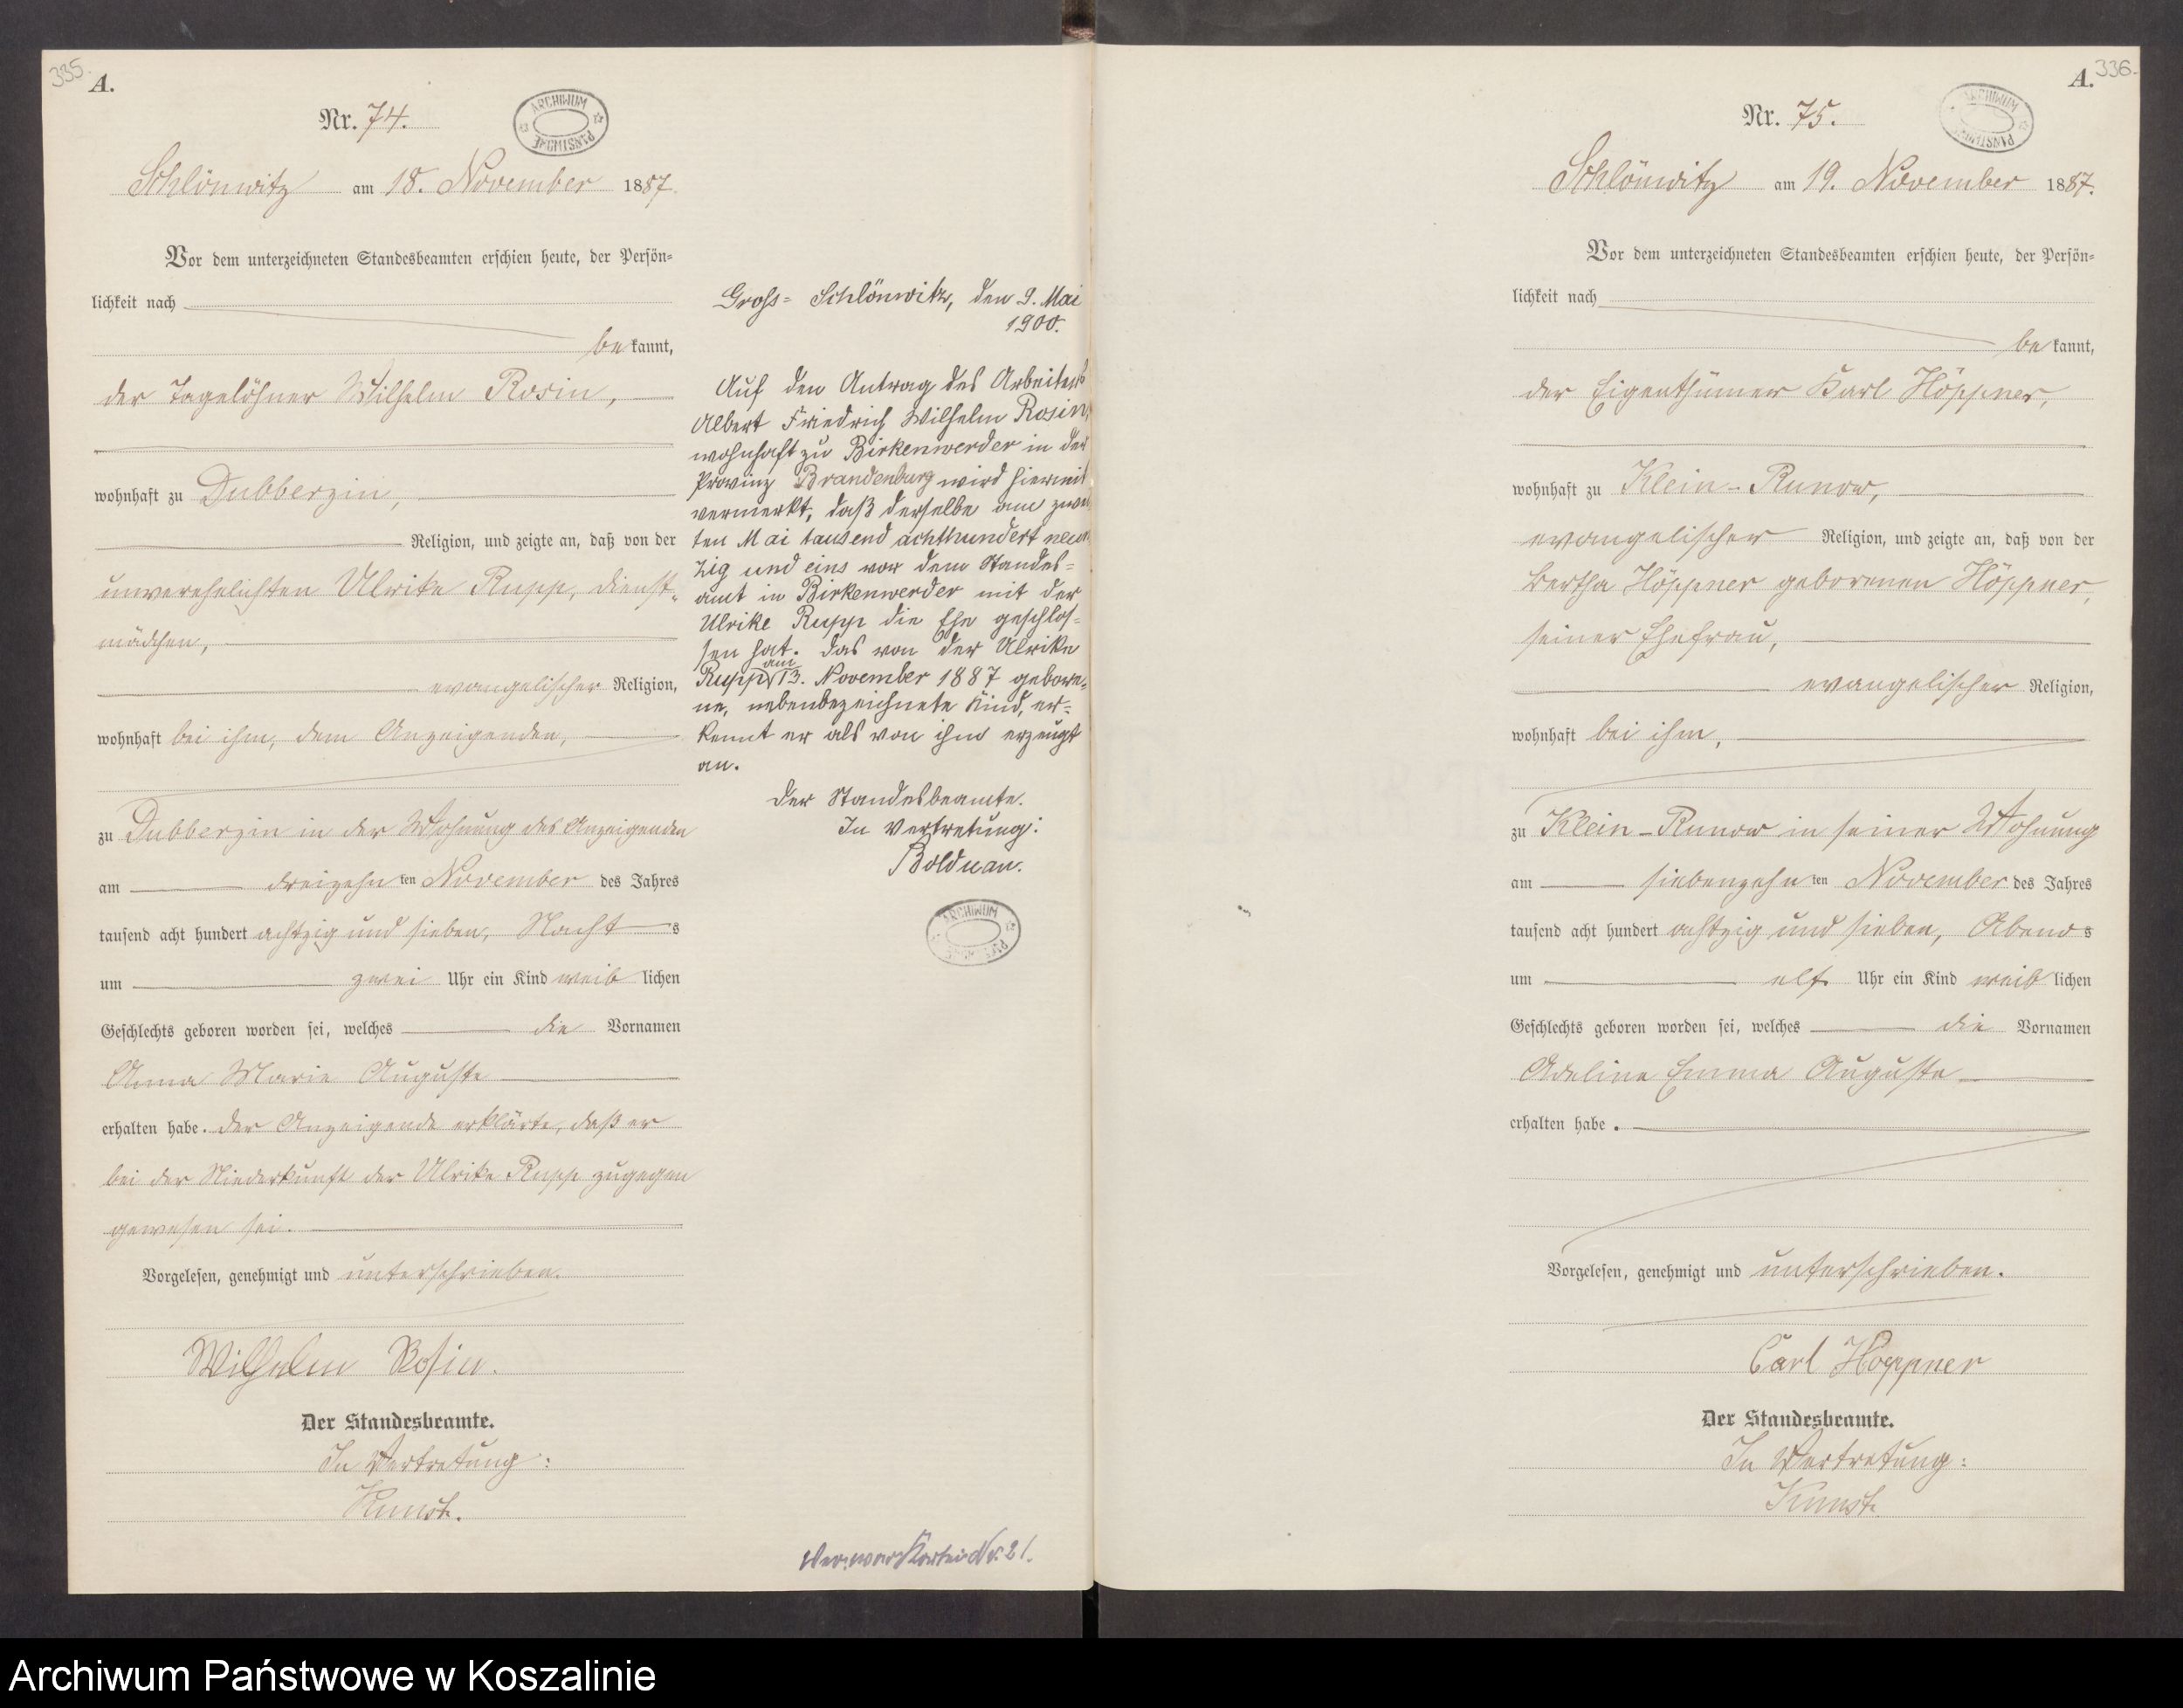 335.
A.
Nr. 74.
ARCHIWUM PAŃSTWOWE
Schlönwitz am 18. November 1887.
Vor dem unterzeichneten Standesbeamten erschien heute, der Persön-
lichkeit nach
bekannt,
der Tagelöhner Wilhelm Rosin,
wohnhaft zu Dubberzin,
Religion, und zeigte an, daß von der
unverehelichten Ulrike Rupp, Dienst-
mädchen,
evangelischer Religion,
wohnhaft bei ihm, dem Anzeigenden,
zu Dubberzin in der Wohnung des Anzeigenden
am dreizehnten November des Jahres
tausend acht hundert achtzig und sieben, Nachts
um zwei Uhr ein Kind weiblichen
Geschlechts geboren worden sei, welches die Vornamen
Anna Marie Auguste
erhalten habe. Der Anzeigende erklärte, daß er
bei der Niederkunft der Ulrike Rupp zugegen
gewesen sei.
Vorgelesen, genehmigt und unterschrieben.
Wilhelm Rosin.
Der Standesbeamte.
In Vertretung:
Kunst.
Gross-Schlönwitz, den 9. Mai
1900.
Auf den Antrag des Arbeiters
Albert Friedrich Wilhelm Rosin,
wohnhaft zu Birkenwerder in der
Provinz Brandenburg wird hiermit
vermerkt, daß derselbe am zwei
ten Mai tausend achthundert neun
zig und eins vor dem Standes-
amt in Birkenwerder mit der
Ulrike Rupp die Ehe geschlos-
sen hat. Das von der Ulrike
Rupp am 13. November 1887 gebore-
ne, nebenbezeichnete Kind, er-
kennt er als von ihm erzeugt
an.
Der Standesbeamte.
In Vertretung:
Bolduan.
ARCHIWUM
Nr. 21.
336.
A.
Nr. 75.
ARCHIWUM PAŃSTWOWE
Schlönwitz am 19. November 1887.
Vor dem unterzeichneten Standesbeamten erschien heute, der Persön-
lichkeit nach
bekannt,
der Eigenthümer Karl Höppner,
wohnhaft zu Klein-Runow,
evangelischer Religion, und zeigte an, daß von der
Bertha Höppner geborenen Höppner,
seiner Ehefrau,
evangelischer Religion,
wohnhaft bei ihm,
zu Klein-Runow in seiner Wohnung
am siebenzehnten November des Jahres
tausend acht hundert achtzig und sieben, Abends
um elf Uhr ein Kind weiblichen
Geschlechts geboren worden sei, welches die Vornamen
Adeline Emma Auguste
erhalten habe.
Vorgelesen, genehmigt und unterschrieben.
Carl Hoeppner
Der Standesbeamte.
In Vertretung:
Kunst.
Archiwum Państwowe w Koszalinie